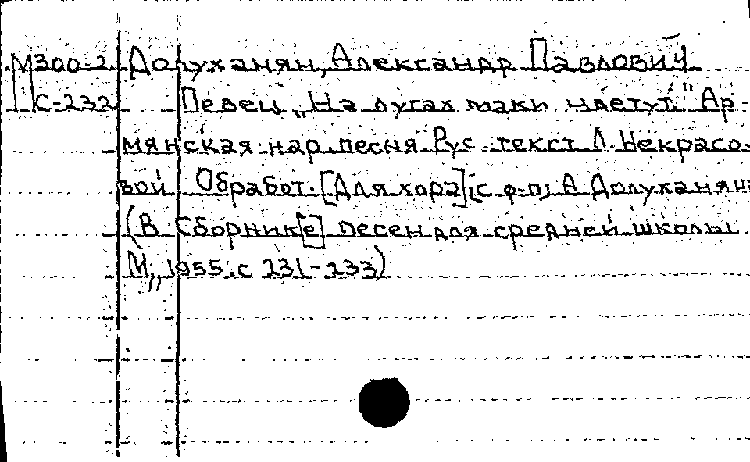 М300-2 Долуханян, Александр Павлович
С-232 Певец „На лугах маки цветут" Ар-
мянская нар. песня. Рус. текст Л. Некрасо-
вой Обработ. [Для хора] [с ф-п] А Долуханяна
(В Сборник[е] песен для средней школы
М., 1955. с 231-233)